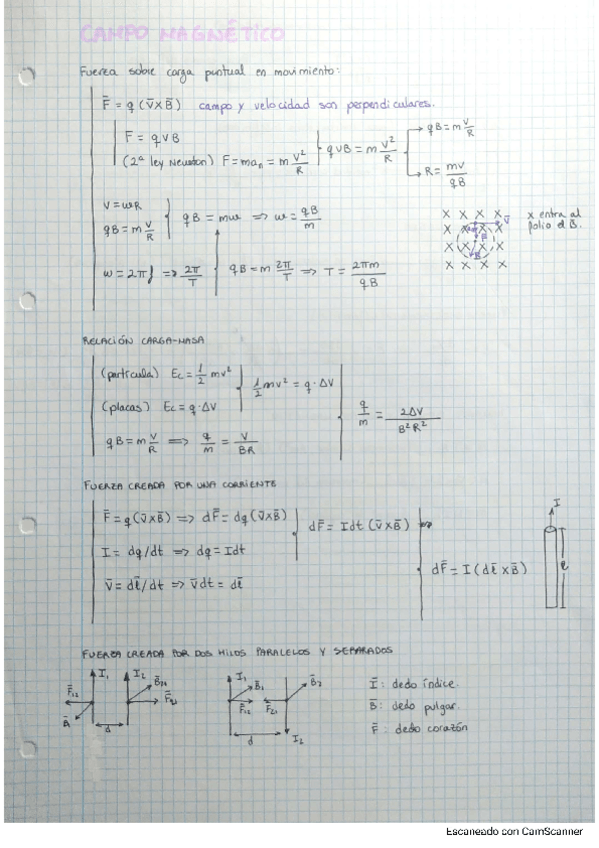 CAMPO MAGNÉTICO
Fuerza sobre carga puntual en movimiento:
F̄ = q (v̄ x B̄) campo y velocidad son perpendiculares.
F = q v B
(2ª ley Newton) F = m aₙ = m v²/R
q v B = m v²/R
→ q B = m v/R
→ R = mv/qB
V = ωR
qB = m v/R
qB = mω ⇒ ω = qB/m
x x x x v̄
x x x x
x x x x
x x x x
x entra al
folio el B̄.
ω = 2πf ⇒ 2π/T
qB = m 2π/T ⇒ T = 2πm/qB
RELACIÓN CARGA-MASA
(partícula) Ec = 1/2 mv²
(placas) Ec = q·ΔV
1/2 mv² = q·ΔV
qB = m v/R ⇒ q/m = v/BR
q/m = 2ΔV/B²R²
FUERZA CREADA POR UNA CORRIENTE
F̄ = q (v̄ x B̄) ⇒ dF̄ = dq (v̄ x B̄)
I = dq/dt ⇒ dq = Idt
v̄ = dl̄/dt ⇒ v̄dt = dl̄
dF̄ = Idt (v̄ x B̄)
dF̄ = I (dl̄ x B̄)
I
l
FUERZA CREADA POR DOS HILOS PARALELOS Y SEPARADOS
I₁ I₂
F̄₁₂
d
I₁ B̄₁ B̄₂
F̄₁₂ F̄₂₁
d I₂
Ī: dedo índice.
B̄: dedo pulgar.
F̄: dedo corazón
Escaneado con CamScanner